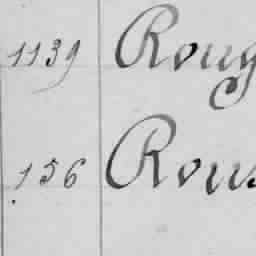 1139 Roug
156 Rous